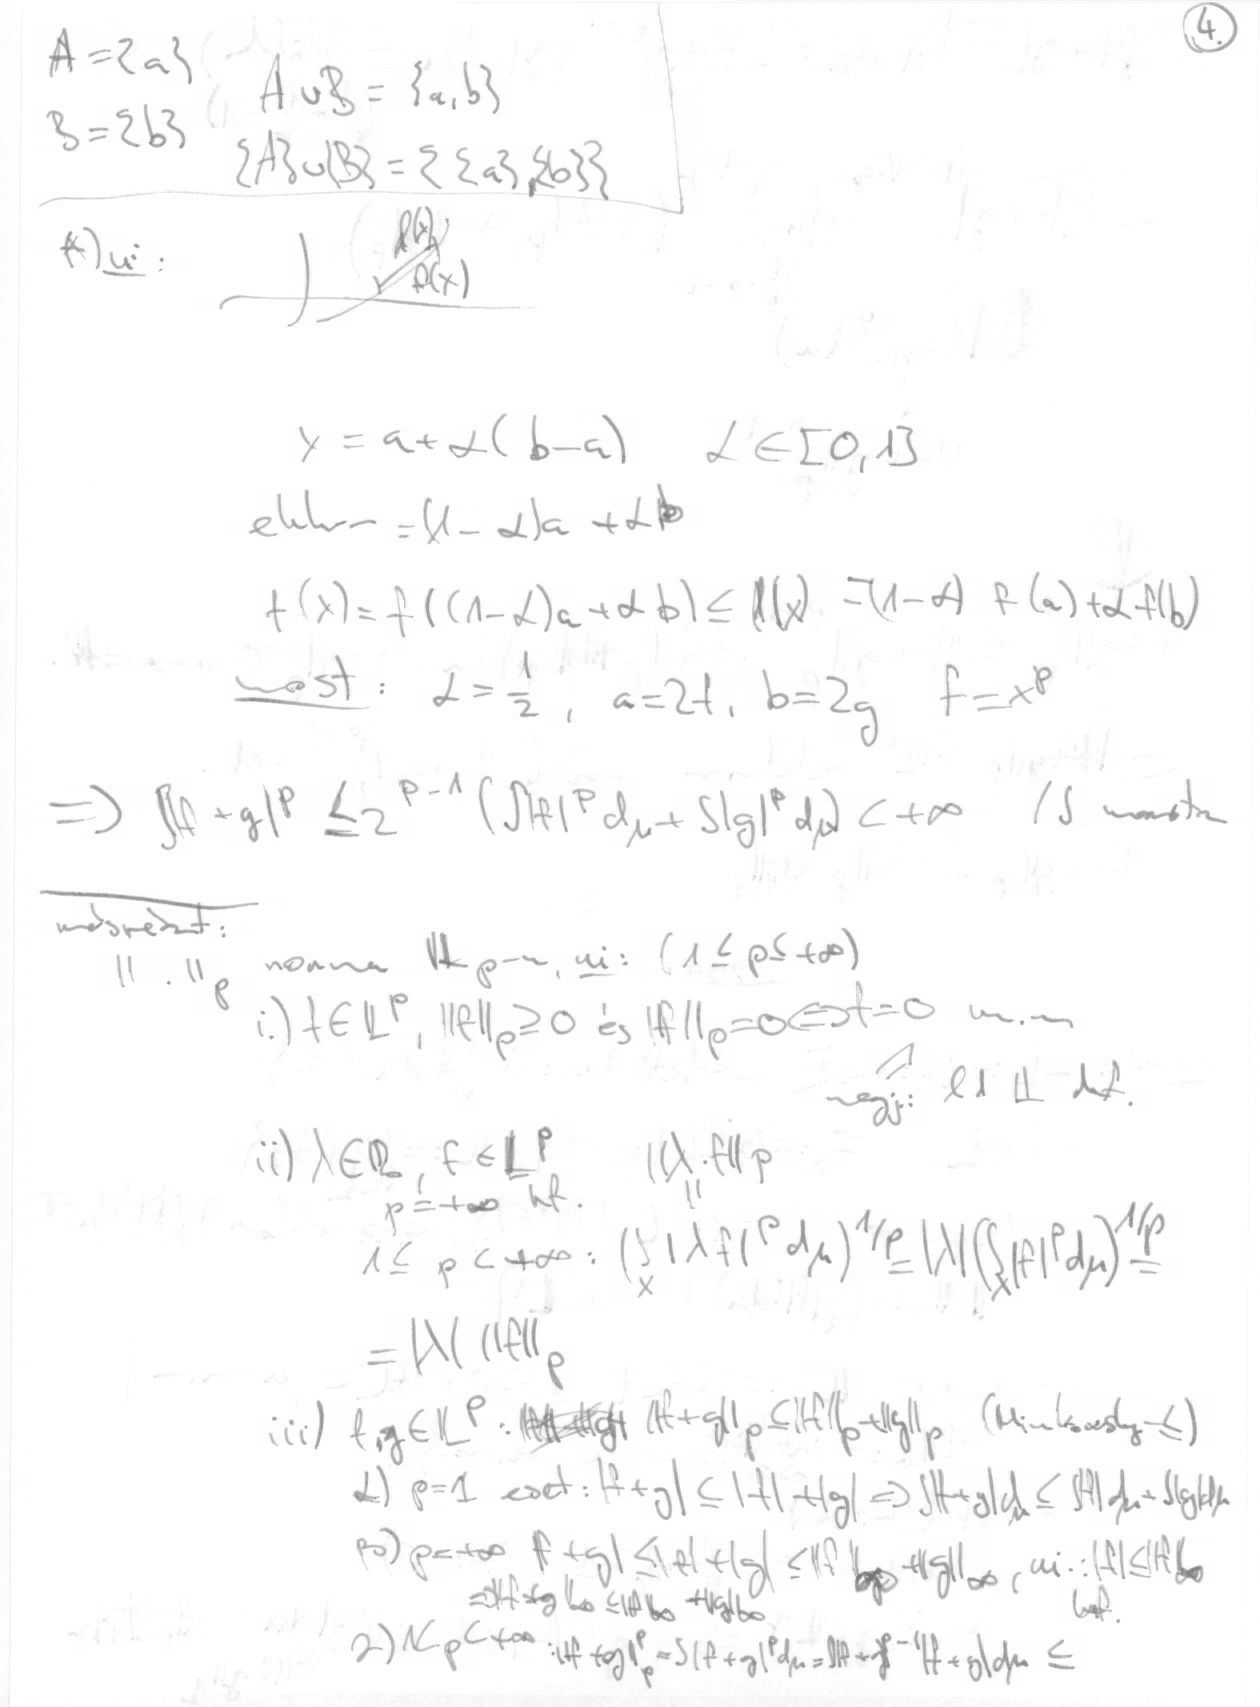 4.
A = {a}
B = {b}
A ∪ B = {a, b}
{A} ∪ {B} = {{a}, {b}}
*) ui:
l(x)
f(x)
x = a + α(b − a)   α ∈ [0, 1]
ekkor = (1 − α)a + αb
f(x) = f((1 − α)a + αb) ≤ l(x) = (1 − α) f(a) + α f(b)
most: α = 1/2, a = 2f, b = 2g   f = x^p
⇒ ∫|f + g|^p ≤ 2^{p−1} (∫|f|^p dμ + ∫|g|^p dμ) < +∞   /∫ monoton
másrészt:
‖.‖_p norma 𝕃_p-n, ui: (1 ≤ p ≤ +∞)
i.) f ∈ 𝕃^p, ‖f‖_p ≥ 0 és ‖f‖_p = 0 ⇔ f = 0 m.m
megj: 𝕃 def.
ii) λ ∈ ℝ, f ∈ 𝕃^p   ‖λ·f‖_p
p = +∞ hf.   =
1 ≤ p < +∞ : (∫_X |λf|^p dμ)^{1/p} = |λ| (∫_X |f|^p dμ)^{1/p} =
= |λ| ‖f‖_p
iii) f, g ∈ 𝕃^p : ‖f + g‖_p ≤ ‖f‖_p + ‖g‖_p (Minkowsky-≤)
α) p = 1 eset: |f + g| ≤ |f| + |g| ⇒ ∫|f + g|dμ ≤ ∫|f|dμ + ∫|g|dμ
β) p = +∞ |f + g| ≤ |f| + |g| ≤ ‖f‖_∞ + ‖g‖_∞, ui.: |f| ≤ ‖f‖_∞
⇒ ‖f + g‖_∞ ≤ ‖f‖_∞ + ‖g‖_∞   hf.
γ) 1 < p < +∞ : ‖f + g‖_p^p = ∫|f + g|^p dμ = ∫|f + g|^{p−1} |f + g|dμ ≤